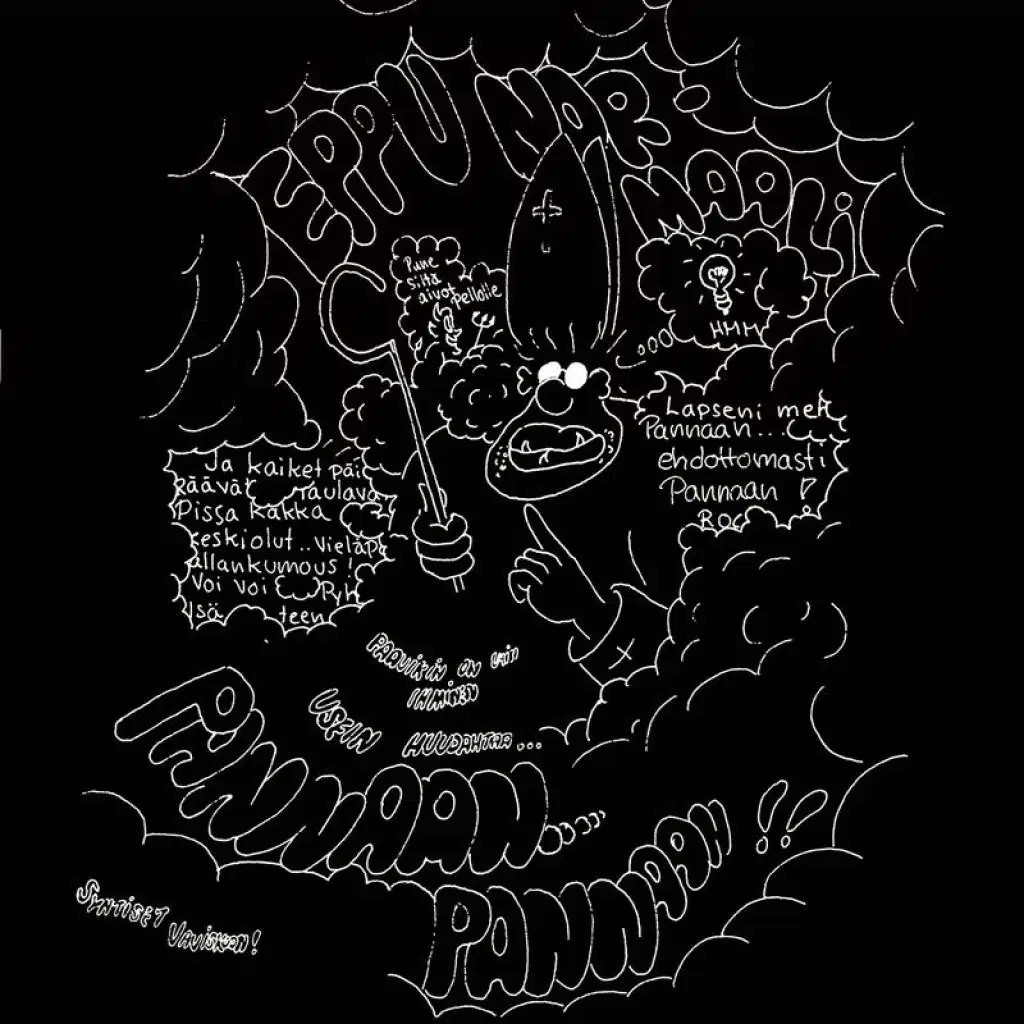 EPPU NOR
MAALI
Pane
siltä
aivot pellolle
HMM
Lapseni mek
Pannaan...
ehdottomasti
Pannaan !
Roc
Ja kaiket päi
räävät raulava
Pissa kakka
keskiolut.. Vieläpä
allankumous !
Voi voi Ryh
Isä teen
PAAVIKIN ON VAIN
IHMINEN
USEIN HUUDAHTAA...
PANNAAN....
PANNAAN !!
SYNTISET
VAVISKOON!